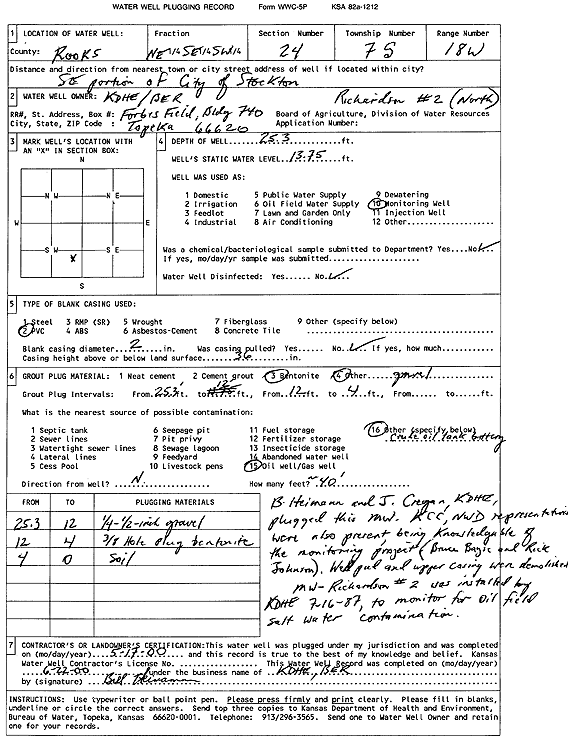 WATER WELL PLUGGING RECORD Form WWC-5P KSA 82a-1212
1 LOCATION OF WATER WELL: Fraction Section Number Township Number Range Number
County: Rooks NE 1/4 SE 1/4 SW 1/4 24 7S 18W
Distance and direction from nearest town or city street address of well if located within city?
SE portion of City of Stockton
2 WATER WELL OWNER: KDHE/BER Richardson #2 (North)
RR#, St. Address, Box #: Forbes Field, Bldg 740 Board of Agriculture, Division of Water Resources
City, State, ZIP Code : Topeka 66620 Application Number:
3 MARK WELL'S LOCATION WITH AN "X" IN SECTION BOX:
N
N W N E
W E
S W S E
X
S
4 DEPTH OF WELL.....25.3.....ft.
WELL'S STATIC WATER LEVEL..13.75....ft.
WELL WAS USED AS:
1 Domestic 5 Public Water Supply 9 Dewatering
2 Irrigation 6 Oil Field Water Supply 10 Monitoring Well
3 Feedlot 7 Lawn and Garden Only 11 Injection Well
4 Industrial 8 Air Conditioning 12 Other...............
Was a chemical/bacteriological sample submitted to Department? Yes....No✓..
If yes, mo/day/yr sample was submitted....................
Water Well Disinfected: Yes...... No.✓..
5 TYPE OF BLANK CASING USED:
1 Steel 3 RMP (SR) 5 Wrought 7 Fiberglass 9 Other (specify below)
2 PVC 4 ABS 6 Asbestos-Cement 8 Concrete Tile ..............................
Blank casing diameter..2......in. Was casing pulled? Yes..... No.✓.. If yes, how much.........
Casing height above or below land surface.....36......in.
6 GROUT PLUG MATERIAL: 1 Neat cement 2 Cement grout 3 Bentonite 4 Other...gravel......
Grout Plug Intervals: From.25.3'.ft. to..12..ft., From..12..ft. to ..4..ft., From...... to......ft.
What is the nearest source of possible contamination:
1 Septic tank 6 Seepage pit 11 Fuel storage 16 Other (specify below)
2 Sewer lines 7 Pit privy 12 Fertilizer storage Crude oil tank battery
3 Watertight sewer lines 8 Sewage lagoon 13 Insecticide storage
4 Lateral lines 9 Feedyard 14 Abandoned water well
5 Cess Pool 10 Livestock pens 15 Oil well/Gas well
Direction from well? ...N........ How many feet? ~40'
FROM TO PLUGGING MATERIALS
25.3 12 1/4-1/2-inch gravel
12 4 3/8 Hole plug bentonite
4 0 Soil
B. Heimann and J. Cregan, KDHE,
plugged this MW. KCC, NWD representatives
were also present being knowledgable of
the monitoring project (Bruce Basye and Rick
Johnson). Well pad and upper casing were demolished
MW-Richardson #2 was installed by
KDHE 7-16-87, to monitor for Oil field
salt water contamination.
7 CONTRACTOR'S OR LANDOWNER'S CERTIFICATION:This water well was plugged under my jurisdiction and was completed
on (mo/day/year)..5-17-00.... and this record is true to the best of my knowledge and belief. Kansas
Water Well Contractor's License No. .................. This Water Well Record was completed on (mo/day/year)
..6-22-00....under the business name of ..KDHE, BER........
by (signature) Bill Heimann
INSTRUCTIONS: Use typewriter or ball point pen. Please press firmly and print clearly. Please fill in blanks,
underline or circle the correct answers. Send top three copies to Kansas Department of Health and Environment,
Bureau of Water, Topeka, Kansas 66620-0001. Telephone: 913/296-3565. Send one to Water Well Owner and retain
one for your records.